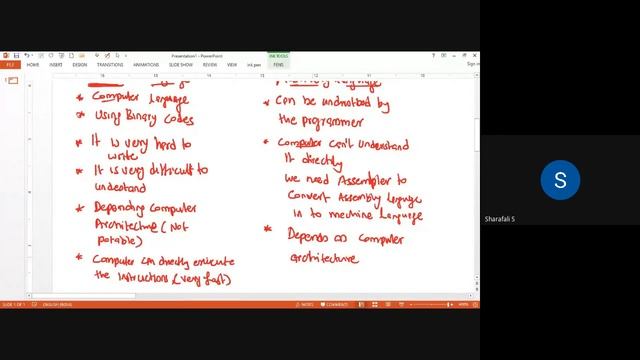 Presentation1 - PowerPoint
INK TOOLS
Sign in
FILE
HOME
INSERT
DESIGN
TRANSITIONS
ANIMATIONS
SLIDE SHOW
REVIEW
VIEW
ink pen
PENS
* Computer Language
* Using Binary Codes
* It is very hard to
write
* It is very difficult to
undestand
* Depending Computer
Architecture (Not
potable)
* Computer can directly execute
the instructions (very fast)
* Can be undnstood by
the programmer
* Computer can't understand
It directly
we need Assempler to
Convert Assembly language
in to mechine Language
* Depends on Computer
architecture
S
Sharafali S
SLIDE 1 OF 1
ENGLISH (INDIA)
NOTES
COMMENTS